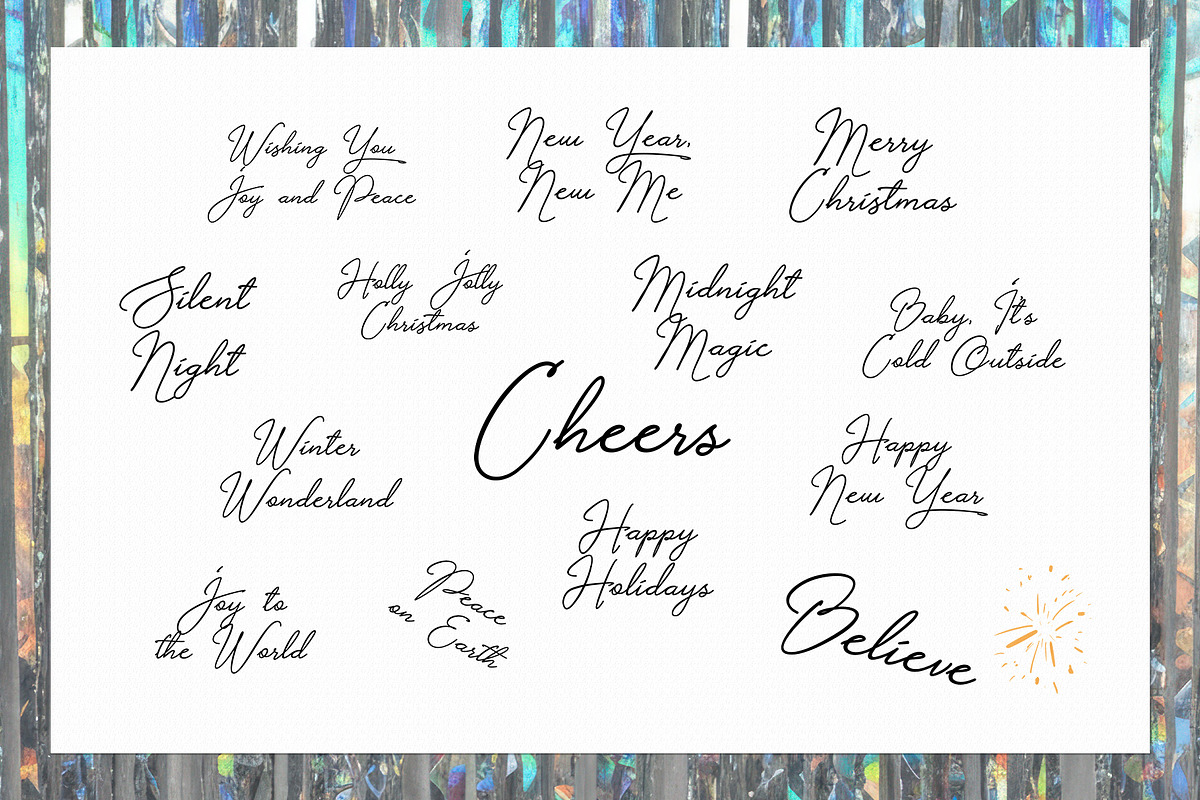 Wishing You
Joy and Peace
New Year,
New Me
Merry
Christmas
Silent
Night
Holly Jolly
Christmas
Midnight
Magic
Baby, It's
Cold Outside
Cheers
Winter
Wonderland
Happy
New Year
Happy
Holidays
Joy to
the World
Peace
on Earth
Believe